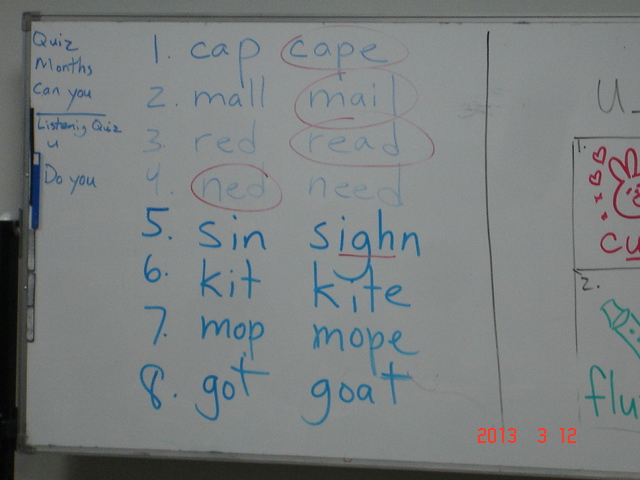 Quiz
Months
Can you
Listening Quiz
u
Do you
1. cap cape
2. mall mail
3. red read
4. ned need
5. sin sighn
6. kit kite
7. mop mope
8. got goat
u_
1.
cu
2.
flu
2013 3 12